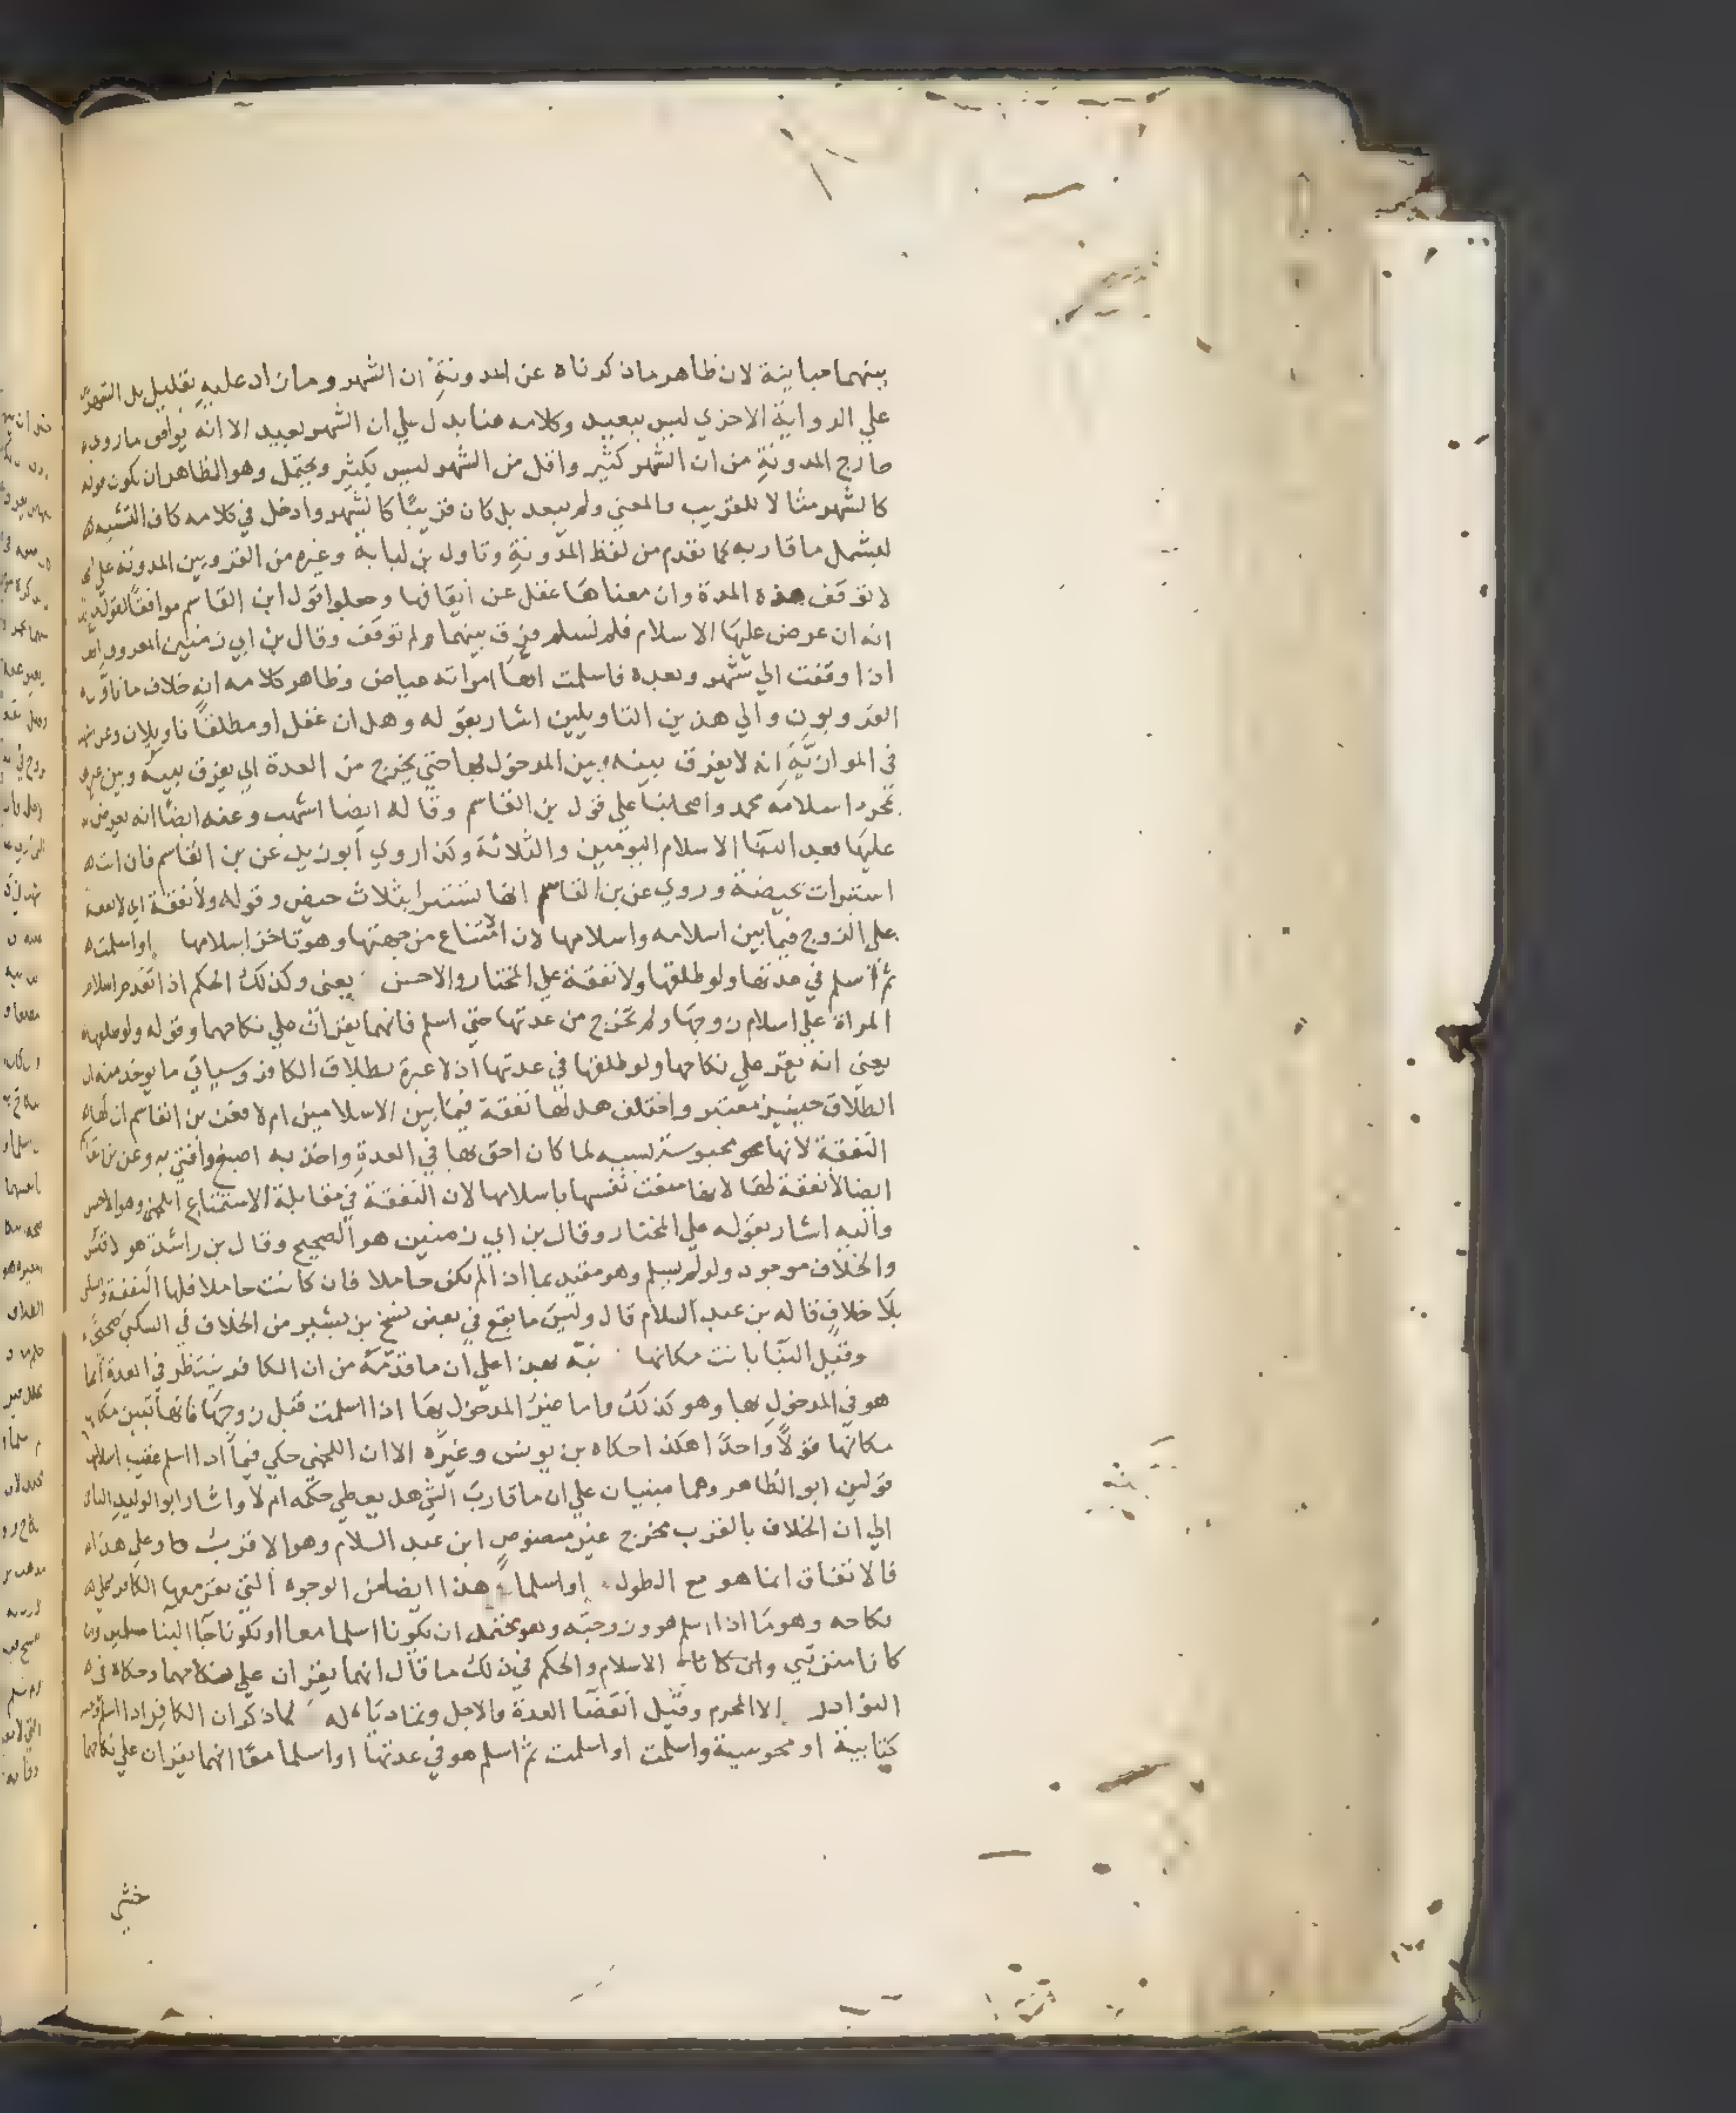 بينهما مباينة لان ظاهر ما ذكرناه عن المدونة ان الشهر وما زاد عليه بقليل بل الشهران
علي الرواية الاخري ليس ببعيد وكلامه هنا يدل علي ان الشهر بعيد الا انه يوافق ما روي
خارج المدونة من ان الشهر كثير واقل من الشهر ليس بكثير ويحتمل وهو الظاهر ان يكون قوله
كالشهر مثالا للقريب والمعني ولم يبعد بل كان قريبا كالشهر وادخل في كلامه كاف التشبيه
ليشمل ما قاربه كما تقدم من لفظ المدونة وتاول بن لبابة وغيره من القرويين المدونة علي انها
لا توقف هذه المدة وان معناها غفل عن ايقافها وجعلوا قول ابن القاسم موافقا لقول
انه ان عرض عليها الاسلام فلم تسلم فرق بينهما ولم توقف وقال بن ابي زمنين المعروف انها
اذا وقفت الي شهر وبعده فاسلمت انها امراته عياض وظاهر كلامه انه خلاف ما تاوله
القرويون والي هذين التاويلين اشار بقوله وهل ان غفل او مطلقا تاويلان وعن اشهب
في الموازية انه لا يفرق بينه وبين المدخول بها حتي يخرج من العدة اي يفرق بينه وبين غيرها
بمجرد اسلامه محمد واصحابنا علي قول بن القاسم وقاله ايضا اشهب وعنه ايضا انه يعرض
عليها بعد البنا الاسلام اليومين والثلاثة وكذا روي ابو زيد عن بن القاسم فان ابت
استبرات بحيضة وروي عن بن القاسم انها تستبرا بثلاث حيض وقوله ولا نفقة اي لا نفقة
علي الزوج فيما بين اسلامه واسلامها لان الامتناع من جهتها وهو تاخر اسلامها او اسلمت
ثم اسلم في عدتها ولو طلقها ولا نفقة علي المختار والاحسن يعني وكذلك الحكم اذا تقدم اسلام
المراة علي اسلام زوجها ولم تخرج من عدتها حتي اسلم فانهما يقران علي نكاحهما وقوله ولو طلقها
يعني انه يقر علي نكاحها ولو طلقها في عدتها اذ لا عبرة بطلاق الكافر وسياتي ما يوخذ منه ان
الطلاق حينيذ معتبر واختلف هل لها نفقة فيما بين الاسلامين ام لا فعن بن القاسم ان لها
النفقة لانها محبوسة بسببه لما كان احق بها في العدة واخذ به اصبغ وافتي به وعن بن القاسم
ايضا لا نفقة لها لانها منعت نفسها باسلامها لان النفقة في مقابلة الاستمتاع اللخمي وهو الاحسن
واليه اشار بقوله علي المختار وقال بن ابي زمنين هو الصحيح وقال بن راشد هو الاقيس
والخلاف موجود ولو لم يسلم وهو مقيد بما اذا لم تكن حاملا فان كانت حاملا فلها النفقة والسكني
بلا خلاف قاله بن عبد السلام قال وليس ما يقع في بعض نسخ بن بشير من الخلاف في السكني بصحيح
وقبل البنا بانت مكانها نبه بهذا علي ان ما قدمه من ان الكافر ينتظر في العدة انما
هو في المدخول بها وهو كذلك واما غير المدخول بها اذا اسلمت قبل زوجها فانها تبين
مكانها قولا واحدا هكذا حكاه بن يونس وغيره الا ان اللخمي حكي فيما اذا اسلم عقيب اسلامها
قولين ابو الطاهر وهما مبنيان علي ان ما قارب الشي هل يعطي حكمه ام لا واشار ابو الوليد الباجي
الي ان الخلاف بالقرب مخرج غير منصوص ابن عبد السلام وهو الاقرب وعلي هذا
فالاتفاق انما هو مع الطول او اسلما وهذا ايضا من الوجوه التي يقر معها الكافر علي
نكاحه وهو ما اذا اسلم هو وزوجته وهو يحتمل ان يكونا اسلما معا او يكونا جاا الينا مسلمين وان
كانا مفترقي الاسلام والحكم في ذلك ما قال انهما يقران علي نكاحهما وحكاه في
النوادر الا المحرم وقبل انقضا العدة والاجل وتماديا له لما ذكر ان الكافر اذا اسلم وتحته
كتابية او مجوسية واسلمت او اسلمت ثم اسلم هو في عدتها او اسلما معا انهما يقران علي نكاحهما